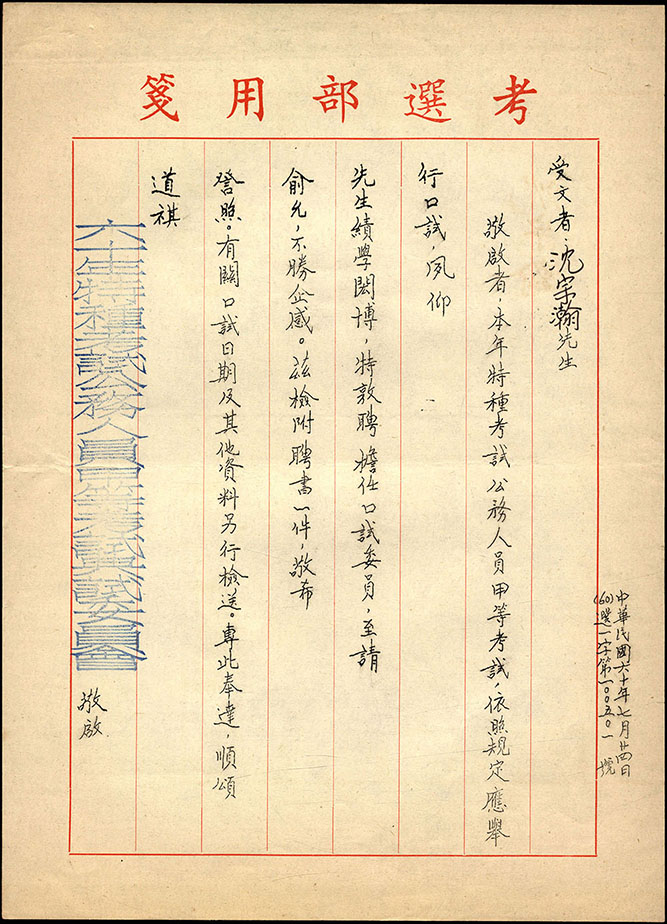 考選部用箋
受文者：沈宗瀚先生
敬啟者，本年特種考試公務人員甲等考試，依照規定應舉
行口試，夙仰
先生績學閎博，特敦聘擔任口試委員，至請
俞允，不勝企感。茲檢附聘書一件，敬希
詧照。有關口試日期及其他資料另行檢送。專此奉達，順頌
道祺
六十年特種考試公務人員甲等考試典試委員會
敬啟
中華民國六十年七月廿四日
(60)選一字第一〇〇五〇一號